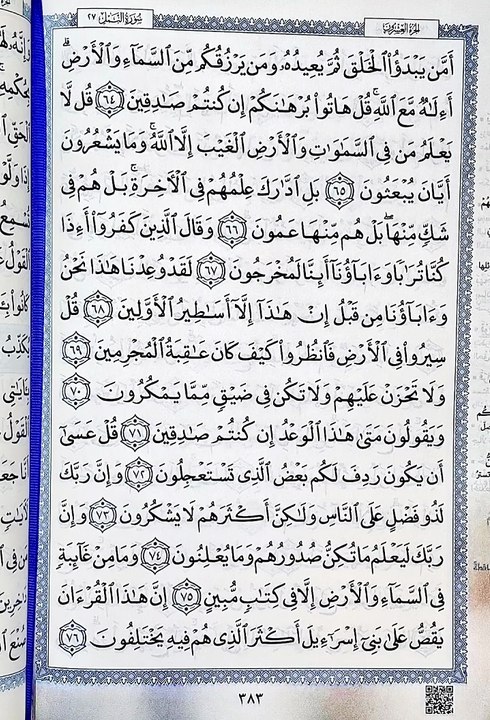 سُورَةُ النَّمْلِ ٢٧
الجُزْءُ العِشْرُونَ
أَمَّن يَبْدَؤُا۟ ٱلْخَلْقَ ثُمَّ يُعِيدُهُۥ وَمَن يَرْزُقُكُم مِّنَ ٱلسَّمَآءِ وَٱلْأَرْضِ ۗ
أَءِلَٰهٌ مَّعَ ٱللَّهِ ۚ قُلْ هَاتُوا۟ بُرْهَٰنَكُمْ إِن كُنتُمْ صَٰدِقِينَ ٦٤ قُل لَّا
يَعْلَمُ مَن فِى ٱلسَّمَٰوَٰتِ وَٱلْأَرْضِ ٱلْغَيْبَ إِلَّا ٱللَّهُ ۚ وَمَا يَشْعُرُونَ
أَيَّانَ يُبْعَثُونَ ٦٥ بَلِ ٱدَّٰرَكَ عِلْمُهُمْ فِى ٱلْءَاخِرَةِ ۚ بَلْ هُمْ فِى
شَكٍّ مِّنْهَا ۖ بَلْ هُم مِّنْهَا عَمُونَ ٦٦ وَقَالَ ٱلَّذِينَ كَفَرُوٓا۟ أَءِذَا
كُنَّا تُرَٰبًا وَءَابَآؤُنَآ أَئِنَّا لَمُخْرَجُونَ ٦٧ لَقَدْ وُعِدْنَا هَٰذَا نَحْنُ
وَءَابَآؤُنَا مِن قَبْلُ إِنْ هَٰذَآ إِلَّآ أَسَٰطِيرُ ٱلْأَوَّلِينَ ٦٨ قُلْ
سِيرُوا۟ فِى ٱلْأَرْضِ فَٱنظُرُوا۟ كَيْفَ كَانَ عَٰقِبَةُ ٱلْمُجْرِمِينَ ٦٩
وَلَا تَحْزَنْ عَلَيْهِمْ وَلَا تَكُن فِى ضَيْقٍ مِّمَّا يَمْكُرُونَ ٧٠
وَيَقُولُونَ مَتَىٰ هَٰذَا ٱلْوَعْدُ إِن كُنتُمْ صَٰدِقِينَ ٧١ قُلْ عَسَىٰٓ
أَن يَكُونَ رَدِفَ لَكُم بَعْضُ ٱلَّذِى تَسْتَعْجِلُونَ ٧٢ وَإِنَّ رَبَّكَ
لَذُو فَضْلٍ عَلَى ٱلنَّاسِ وَلَٰكِنَّ أَكْثَرَهُمْ لَا يَشْكُرُونَ ٧٣ وَإِنَّ
رَبَّكَ لَيَعْلَمُ مَا تُكِنُّ صُدُورُهُمْ وَمَا يُعْلِنُونَ ٧٤ وَمَا مِنْ غَآئِبَةٍ
فِى ٱلسَّمَآءِ وَٱلْأَرْضِ إِلَّا فِى كِتَٰبٍ مُّبِينٍ ٧٥ إِنَّ هَٰذَا ٱلْقُرْءَانَ
يَقُصُّ عَلَىٰ بَنِىٓ إِسْرَٰٓءِيلَ أَكْثَرَ ٱلَّذِى هُمْ فِيهِ يَخْتَلِفُونَ ٧٦
٣٨٣